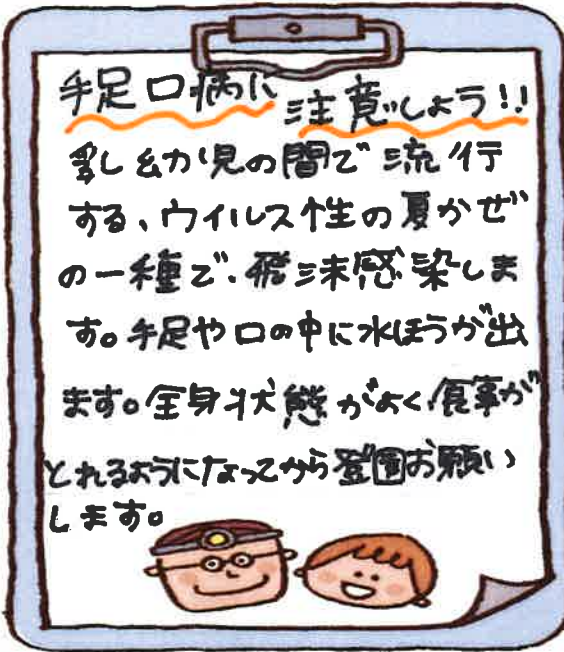 手足口病に注意しよう!!
乳幼児の間で流行
する、ウイルス性の夏かぜ
の一種で、飛沫感染しま
す。手足や口の中に水ほうが出
ます。全身状態がよく、食事が
とれるようになってから登園お願い
します。